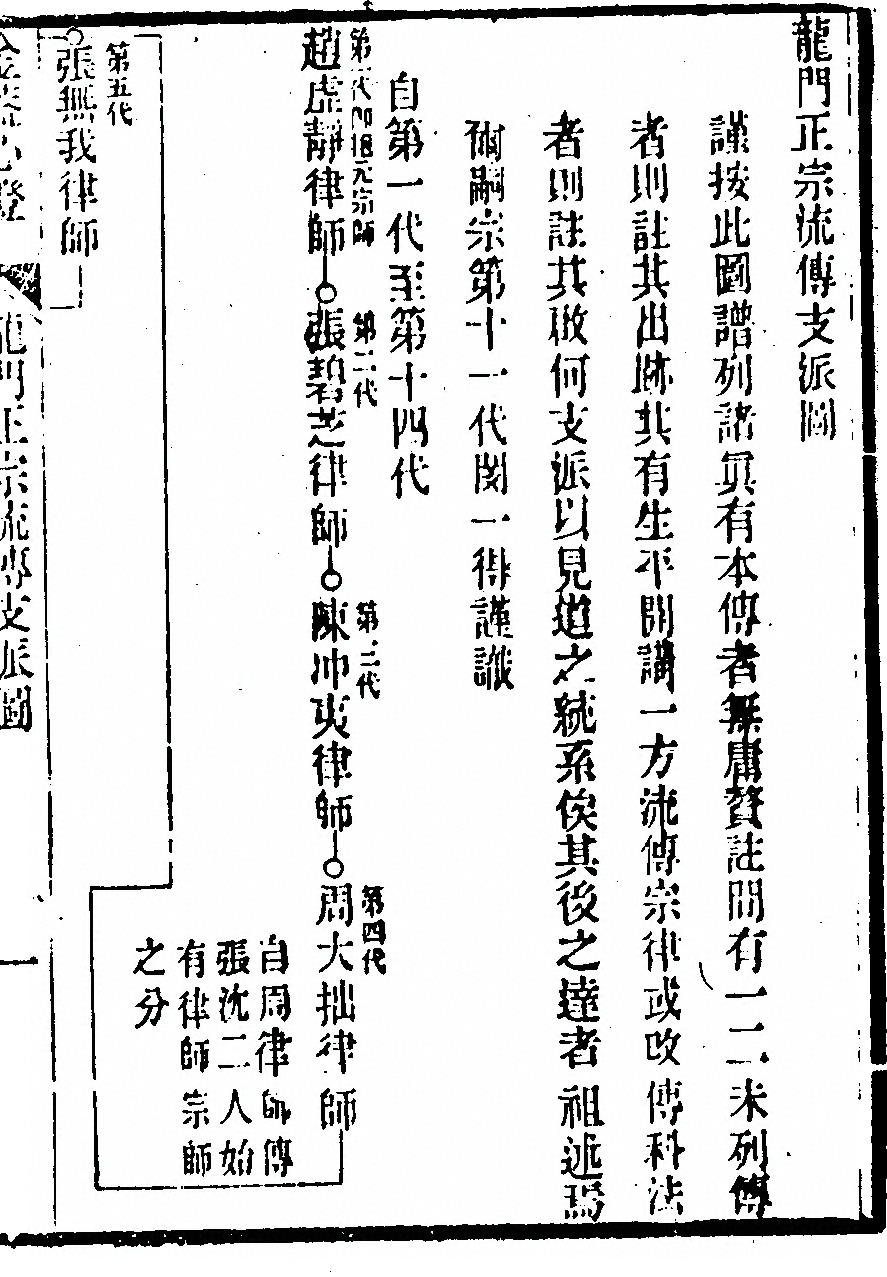 龍門正宗流傳支派圖
謹按此圖譜列諸眞有本傳者無庸贅註間有一二未列傳
者則註其出跡其有生平開講一方流傳宗律或改傳科法
者則註其啟何支派以見道之統系俟其後之達者祖述焉
爾嗣宗第十一代閔一得謹識
自第一代至第十四代
第一代
元宗師
趙虛靜律師
第二代
張碧芝律師
第三代
陳冲夷律師
第四代
周大拙律師
自周律師傳
張沈二人始
有律師宗師
之分
第五代
張無我律師
金蓋心燈
龍門正宗流傳支派圖
一